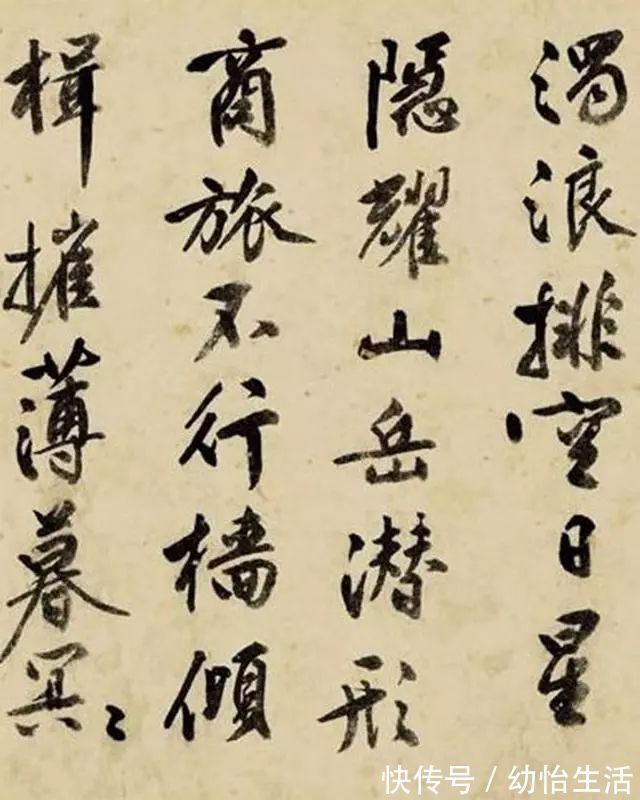 濁浪排空日星
隱耀山岳潛形
商旅不行檣傾
楫摧薄暮冥〻
快传号/幼怡生活